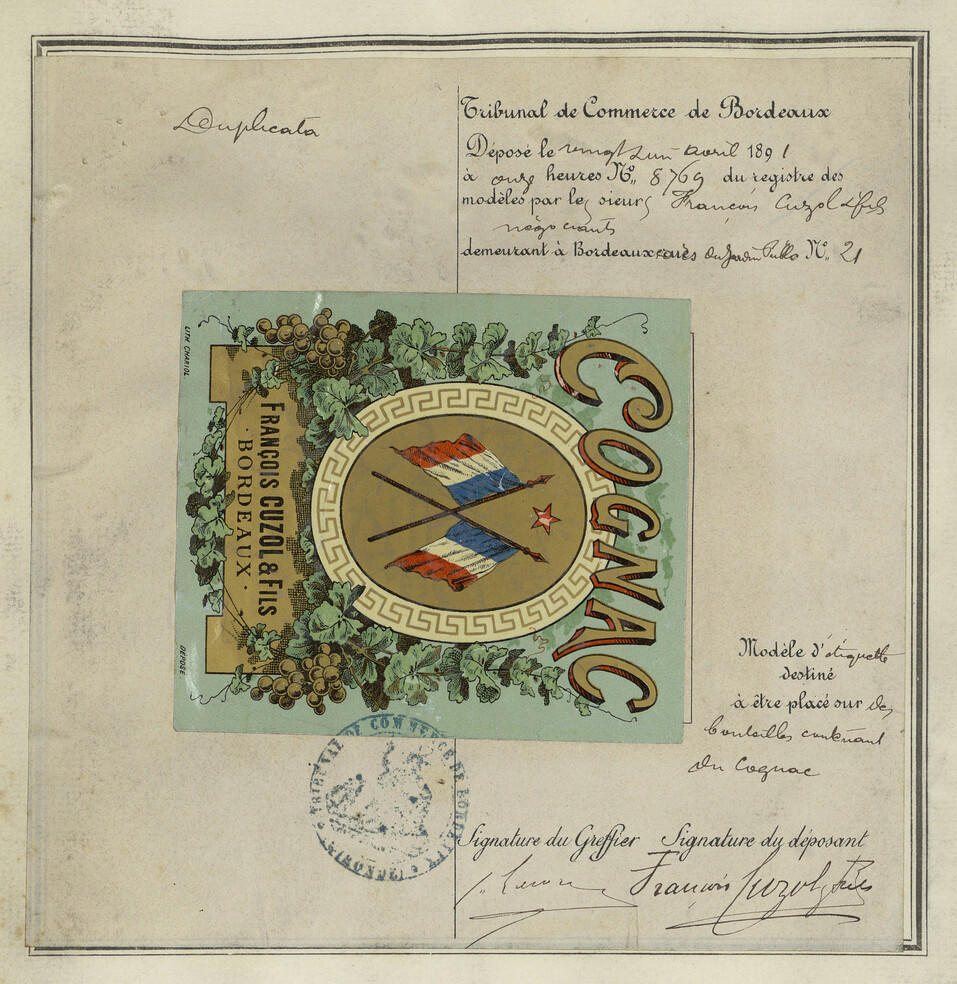 Duplicata
Tribunal de Commerce de Bordeaux
Déposé le vingt un avril 1891
à onze heures No, 8769 du registre des
modèles par les sieurs François Cuzol & fils
négociants
demeurant à Bordeaux du Jardin Public No. 21
LITH CHARIOL
COGNAC
FRANÇOIS CUZOL & FILS
· BORDEAUX ·
DÉPOSÉ
Modèle d'étiquette
destiné
à être placé sur des
bouteilles contenant
du Cognac
TRIBUNAL DE COMMERCE DE BORDEAUX
(GIRONDE)
Signature du Greffier Signature du déposant
François Cuzol & fils